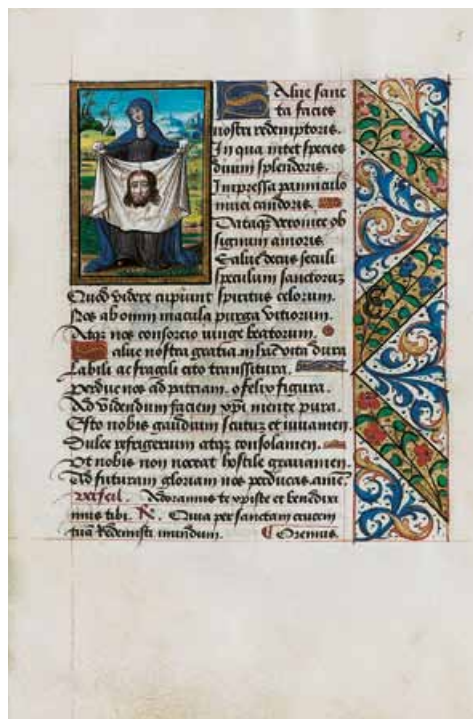 5
Salue sanc
ta facies
nostri redemptoris.
In qua nitet species
diuini splendoris.
Impressa panniculo
niuei candoris.
Dataq3 veronice ob
signum amoris.
Salue decus seculi
speculum sanctoru3
Quod videre cupiunt spiritus celorum.
Nos ab omni macula purga vitiorum.
Atq3 nos consorcio iunge beatorum.
Salue nostra gratia in hac vita dura
Labili ac fragili cito transsitura.
perduc nos ad patriam. o felix figura.
Ad videndum faciem xpi mente pura.
Esto nobis gaudium scutu3 et iuuamen.
Dulce refrigerium atq3 consolamen.
Ut nobis non noceat hostile grauamen.
Ad futuram gloriam nos perducas. amē.
Adoramus te xpiste et benedixi
mus tibi. R. Quia per sanctam crucem
tuā Redemisti mundum. Oremus.